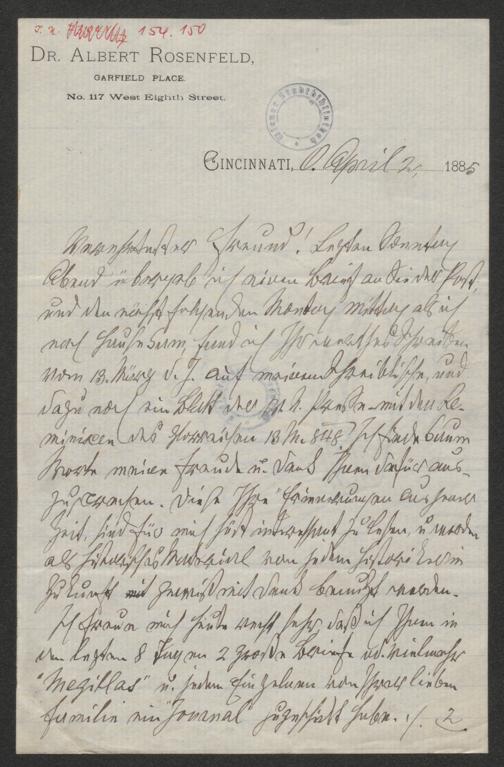 154.150
DR. ALBERT ROSENFELD,
GARFIELD PLACE.
No. 117 West Eighth Street.
Wiener Stadtbibliothek
CINCINNATI, O. April 2, 1885
Verehrtester Freund! Letzten Sonntag
Abend übergab ich einen Brief an Sie der Post,
und den nächstfolgenden Montag Mittag als ich
nach Hause kam, fand ich Ihr Schreiben
vom 13. März d. J. auf meinem Schreibtische, und
dazu noch ein Blatt der Presse mit den Re-
miniscen des 13 M. 848. Ich finde kaum
Worte meine Freude u. Dank Ihnen dafür aus-
zusprechen. Diese Ihre Erinnerungen aus jener
Zeit, sind für mich höchst interessant zu lesen, u. werden
als historisches Material von jedem Historiker in
Zukunft gewiß mit Dank benützt werden.
Ich freue mich heute recht sehr, daß ich Ihnen in
den letzten 8 Tagen 2 große Briefe od. vielmehr
"Megillas" u. jedem Einzelnen von Ihrer lieben
Familie ein "Journal" zugeschickt habe. ./. 2